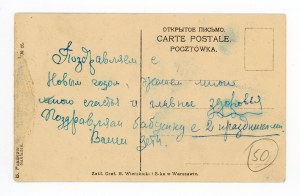 ОТКРЫТОЕ ПИСЬМО.
CARTE POSTALE
POCZTÓWKA.
Поздравляем с
Новым годом, желаем много
много счастья и главное здоровья
Поздравляем бабушку с 2 праздниками
Ваши дети.
50
Zakł. Graf. B. Wierzbicki i S-ka w Warszawie.